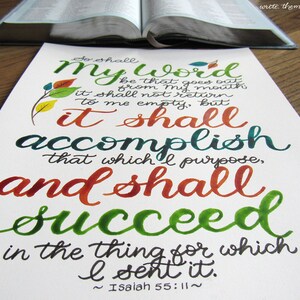 wrote them
So shall
My Word
be that goes out
from My mouth
it shall not return
to me empty, but
it shall
accomplish
that which I purpose,
and shall
succeed
in the thing for which
I sent it.
~ Isaiah 55:11 ~